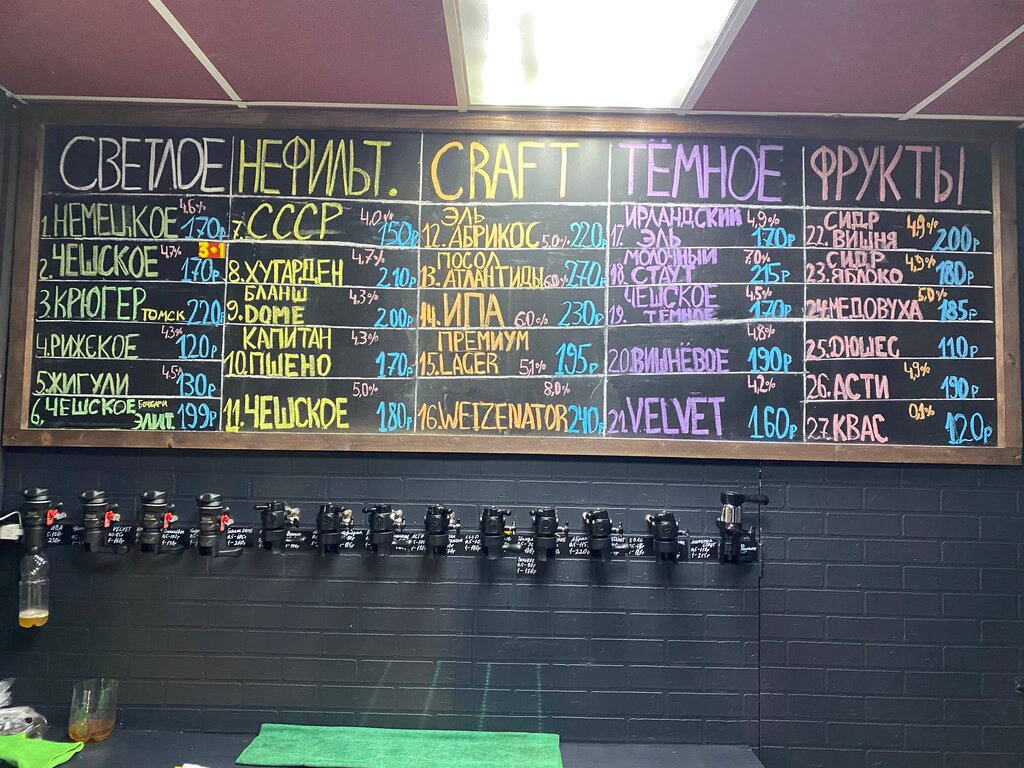 СВЕТЛОЕ
1. НЕМЕЦКОЕ 4,6% 170р
2. ЧЕШСКОЕ 4,7% 3+1 170р
3 КРЮГЕР ТОМСК 220р
4. РИЖСКОЕ 4,3% 120р
5. ЖИГУЛИ 4,5% 130р
6, ЧЕШСКОЕ
ЭЛИТ. 199р
НЕФИЛЬТ.
7. СССР 4,0% 150р
8. ХУГАРДЕН 4,7% 210р
БЛАНШ
9. DOME 4,3% 200р
КАПИТАН
10. ПШЕНО 4,3% 170р
11. ЧЕШСКОЕ 5,0% 180р
CRAFT
ЭЛЬ
12. АБРИКОС 5,0% 220р
ПОСОЛ
13. АТЛАНТИДЫ 6,0% 270р
14. ИПА 6,0% 230р
ПРЕМИУМ
15. LAGER 5,1% 195р
16. WEIZENATOR 8,0% 240р
ТЁМНОЕ
ИРЛАНДСКИЙ
17. ЭЛЬ 4,9% 170р
МОЛОЧНЫЙ
18. СТАУТ 7,0% 215р
ЧЕШСКОЕ
19. ТЕМНОЕ 4,5% 170р
20. ВИШНЁВОЕ 4,8% 190р
21. VELVET 4,2% 160р
ФРУКТЫ
СИДР
22. ВИШНЯ 4,9% 200р
СИДР
23. ЯБЛОКО 4,9% 180р
24. МЕДОВУХА 5,0% 185р
25. ДЮШЕС 110р
26. АСТИ 4,9% 190р
27. КВАС 0,1% 120р
VELVET